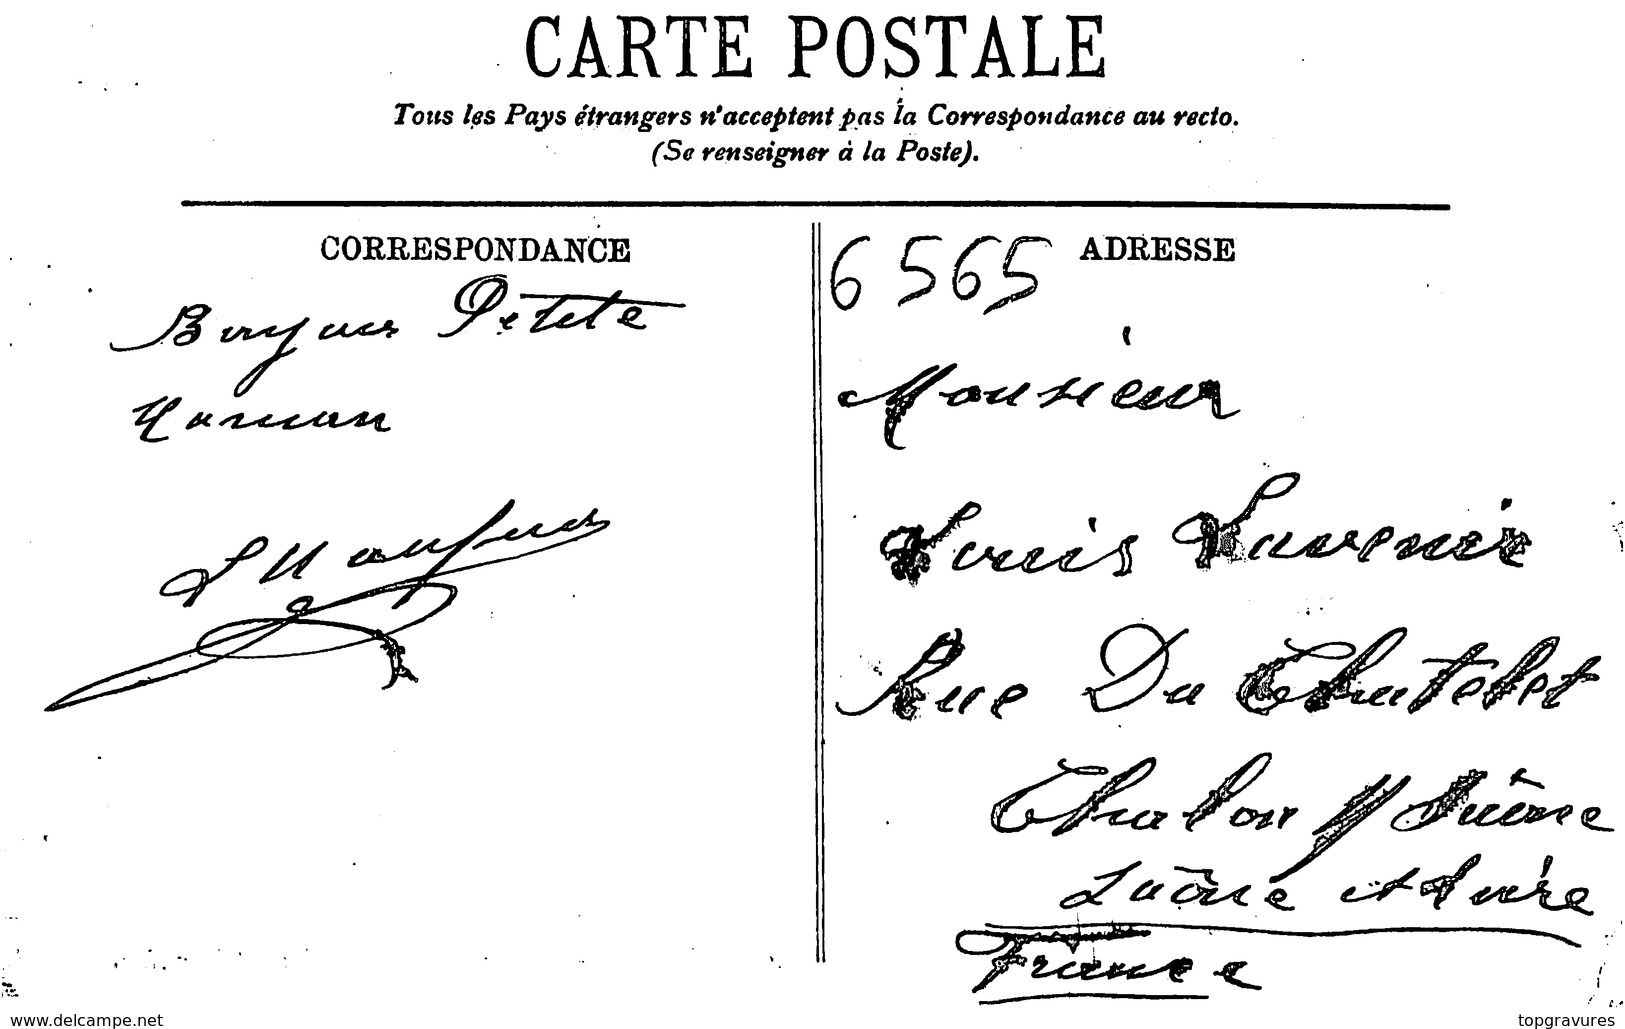 CARTE POSTALE
Tous les Pays étrangers n'acceptent pas la Correspondance au recto.
(Se renseigner à la Poste).
CORRESPONDANCE
Bonjour Petite
Maman
6565
ADRESSE
Monsieur
Louis Lavenir
Rue Du Chatelet
Chalon s/ Saône
Saône et Loire
France
www.delcampe.net
topgravures